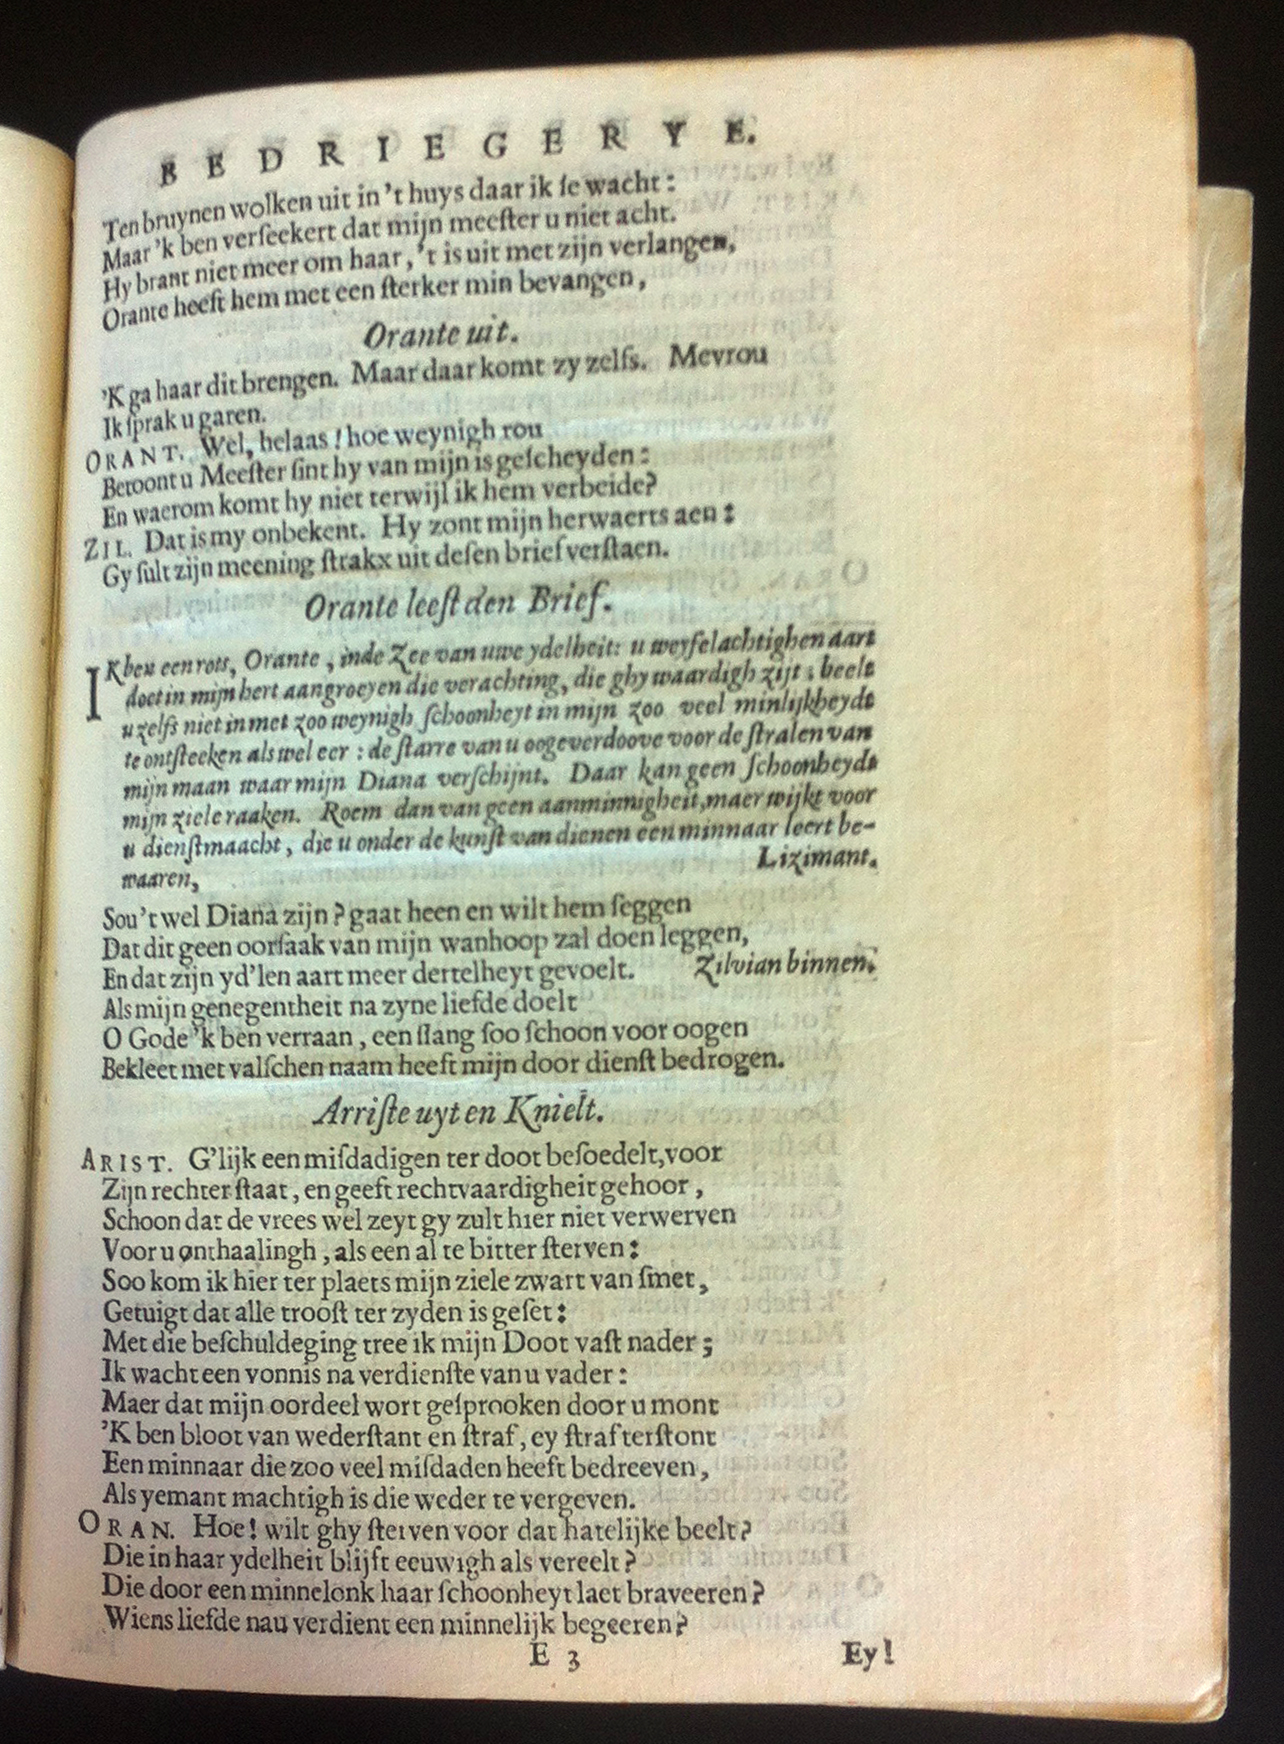 BEDRIEGERYE.
Ten bruynen wolken uit in 't huys daar ik ſe wacht:
Maar 'k ben verſeekert dat mijn meeſter u niet acht.
Hy brant niet meer om haar, 't is uit met zijn verlangen,
Orante heeft hem met een ſterker min bevangen,
Orante uit.
'K ga haar dit brengen. Maar daar komt zy zelfs. Mevrou
Ik ſprak u garen.
ORANT. Wel, helaas! hoe weynigh rou
Betoont u Meeſter ſint hy van mijn is geſcheyden:
En waerom komt hy niet terwijl ik hem verbeide?
ZIL. Dat is my onbekent. Hy zont mijn herwaerts aen:
Gy ſult zijn meening ſtrakx uit deſen brief verſtaen.
Orante leeſt den Brief.
IK ben een rots, Orante, inde Zee van uwe ydelheit: u weyfelachtighen aart
doet in mijn hert aangroeyen die verachting, die ghy waardigh zijt; beelt
u zelfs niet in met zoo weynigh ſchoonheyt in mijn zoo veel minlijkheydt
te ontſteeken als wel eer: de ſtarre van u ooge verdoove voor de ſtralen van
mijn maan waar mijn Diana verſchijnt. Daar kan geen ſchoonheydt
mijn ziele raaken. Roem dan van geen aanminnigheit, maer wijkt voor
u dienſtmaacht, die u onder de kunſt van dienen een minnaar leert be-
waaren, Lizimant.
Sou 't wel Diana zijn? gaat heen en wilt hem ſeggen
Dat dit geen oorſaak van mijn wanhoop zal doen leggen,
En dat zijn yd'len aart meer dertelheyt gevoelt. Zilvian binnen.
Als mijn genegentheit na zyne liefde doelt
O Gode 'k ben verraan, een ſlang ſoo ſchoon voor oogen
Bekleet met valſchen naam heeft mijn door dienſt bedrogen.
Arriſte uyt en Knielt.
ARIST. G'lijk een miſdadigen ter doot beſoedelt, voor
Zijn rechter ſtaat, en geeft rechtvaardigheit gehoor,
Schoon dat de vrees wel zeyt gy zult hier niet verwerven
Voor u onthaalingh, als een al te bitter ſterven:
Soo kom ik hier ter plaets mijn ziele zwart van ſmet,
Getuigt dat alle trooſt ter zyden is geſet:
Met die beſchuldeging tree ik mijn Doot vaſt nader;
Ik wacht een vonnis na verdienſte van u vader:
Maer dat mijn oordeel wort geſprooken door u mont
'K ben bloot van wederſtant en ſtraf, ey ſtraf terſtont
Een minnaar die zoo veel miſdaden heeft bedreeven,
Als yemant machtigh is die weder te vergeven.
ORAN. Hoe! wilt ghy ſterven voor dat hatelijke beelt?
Die in haar ydelheit blijft eeuwigh als vereelt?
Die door een minnelonk haar ſchoonheyt laet braveeren?
Wiens liefde nau verdient een minnelijk begeeren?
E 3 Ey!